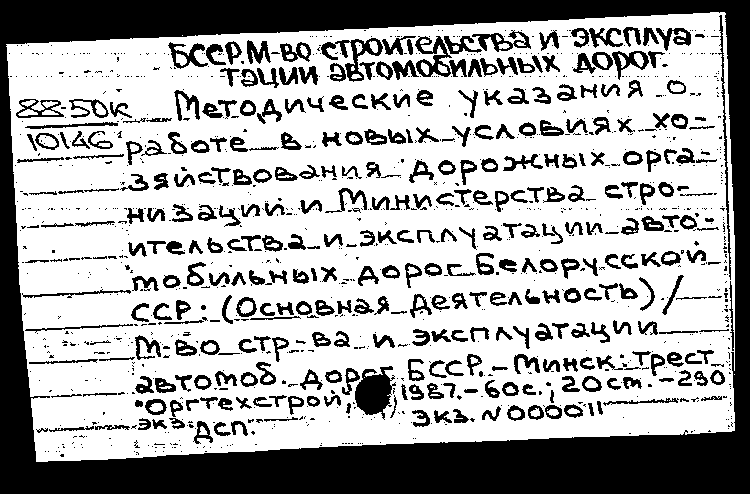 БССР. М-во строительства и эксплуа-
тации автомобильных дорог.
88-50к Методические указания о
10146 работе в новых условиях хо-
зяйствования дорожных орга-
низаций и Министерства стро-
ительства и эксплуатации авто-
мобильных дорог Белорусской
ССР: (Основная деятельность) /
М-во стр-ва и эксплуатации
автомоб. дорог БССР. - Минск: трест
"Оргтехстрой", 1987. - 60с.; 20 cm. - 290
экз. ДСП. Экз. N000011